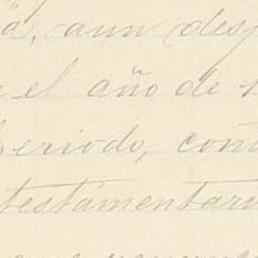 a, aun desp
el año de 1
periodo, con
testamentari